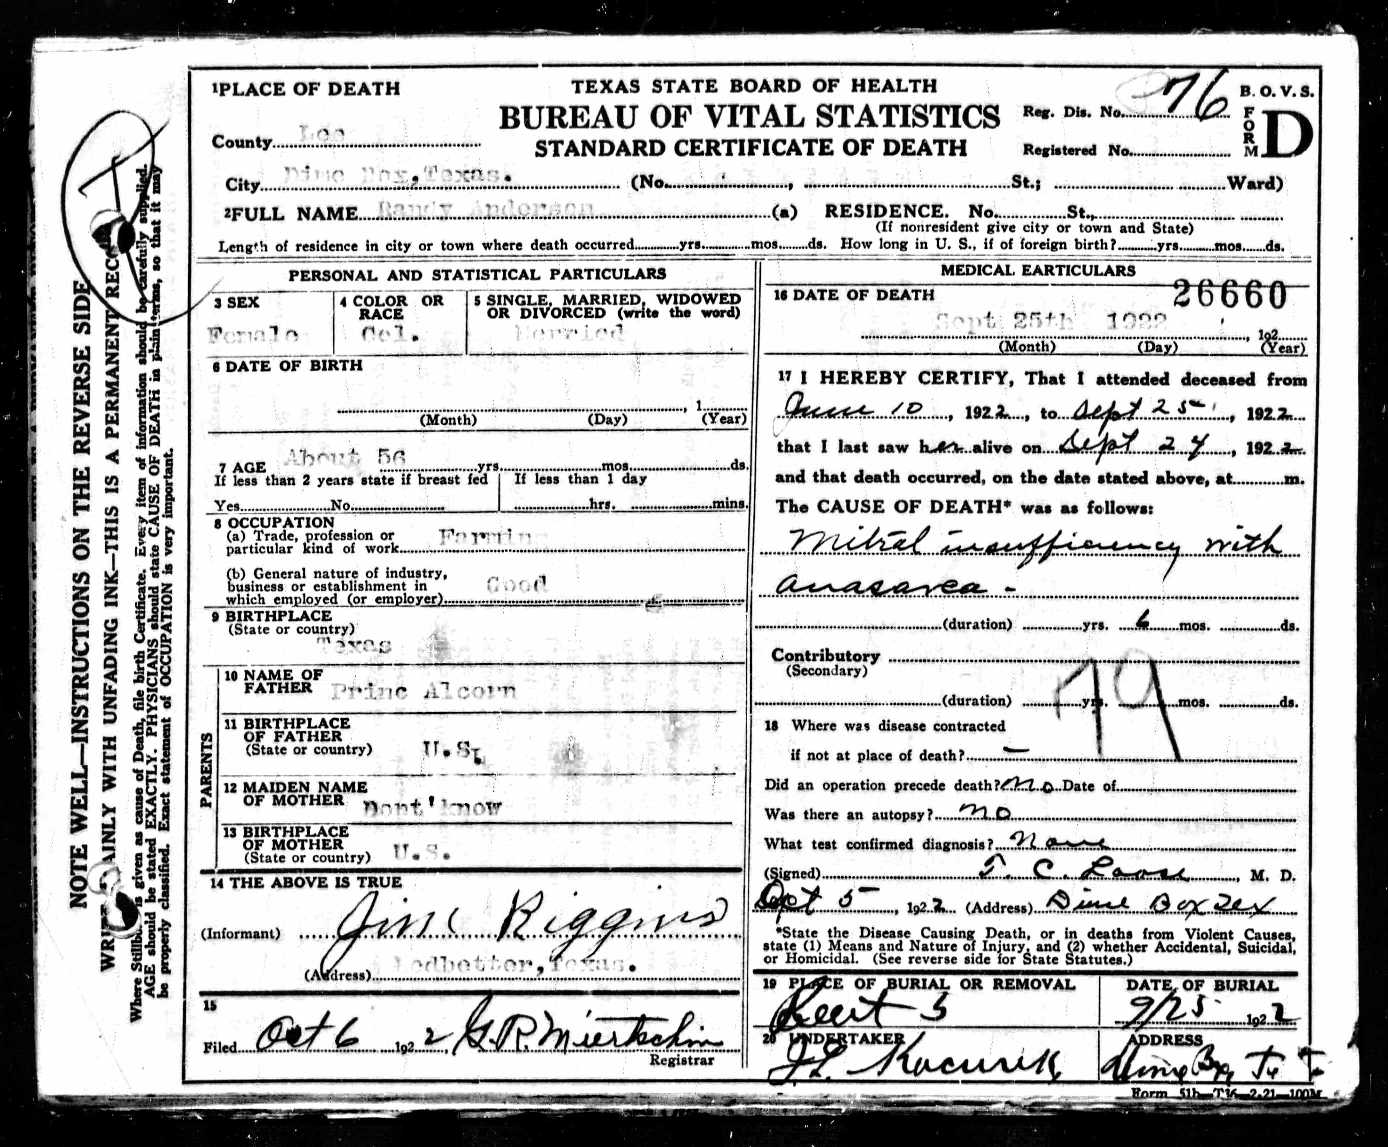 TEXAS STATE BOARD OF HEALTH
BUREAU OF VITAL STATISTICS
STANDARD CERTIFICATE OF DEATH
Reg. Dis. No. 76
Registered No.
B. O. V. S.
FORM D
1 PLACE OF DEATH
County Lee
City Dime Box, Texas. (No. , St.; Ward)
2 FULL NAME Randy Anderson (a) RESIDENCE. No. St.,
(If nonresident give city or town and State)
Length of residence in city or town where death occurred yrs. mos. ds. How long in U. S., if of foreign birth? yrs. mos. ds.
PERSONAL AND STATISTICAL PARTICULARS
3 SEX
Female
4 COLOR OR RACE
Col.
5 SINGLE, MARRIED, WIDOWED
OR DIVORCED (write the word)
Merried
6 DATE OF BIRTH
, 1
(Month) (Day) (Year)
7 AGE About 56 yrs. mos. ds.
If less than 2 years state if breast fed
Yes No
If less than 1 day
hrs. mins.
8 OCCUPATION
(a) Trade, profession or
particular kind of work Farming
(b) General nature of industry,
business or establishment in
which employed (or employer) Good
9 BIRTHPLACE
(State or country)
Texas
PARENTS
10 NAME OF
FATHER Princ Alcorn
11 BIRTHPLACE
OF FATHER
(State or country) U.S.
12 MAIDEN NAME
OF MOTHER Dont'know
13 BIRTHPLACE
OF MOTHER
(State or country) U.S.
14 THE ABOVE IS TRUE
(Informant) Jim Riggins
(Address) Ledbetter, Texas.
15
Filed Oct 6 1922 G. R. Miertschin
Registrar
MEDICAL EARTICULARS
26660
16 DATE OF DEATH
Sept 25th 1922
, 192
(Month) (Day) (Year)
17 I HEREBY CERTIFY, That I attended deceased from
June 10, 1922, to Sept 25, 1922
that I last saw her alive on Sept 24, 1922
and that death occurred, on the date stated above, at m.
The CAUSE OF DEATH* was as follows:
Mitral insufficiency with
anasarca -
(duration) yrs. 6 mos. ds.
Contributory
(Secondary)
79
(duration) yrs. mos. ds.
18 Where was disease contracted
if not at place of death? —
Did an operation precede death? No Date of
Was there an autopsy? no
What test confirmed diagnosis? None
(Signed) T. C. Loose, M. D.
Oct 5, 1922 (Address) Dime Box Tex
*State the Disease Causing Death, or in deaths from Violent Causes,
state (1) Means and Nature of Injury, and (2) whether Accidental, Suicidal,
or Homicidal. (See reverse side for State Statutes.)
19 PLACE OF BURIAL OR REMOVAL
DATE OF BURIAL
9/25 1922
20 UNDERTAKER
J L Kocurek
ADDRESS
Dime Box, Te
Form 51b—T36—2-21—100M
NOTE WELL—INSTRUCTIONS ON THE REVERSE SIDE
WRITE PLAINLY WITH UNFADING INK—THIS IS A PERMANENT RECORD
Where Stillbirth is given as cause of Death, file birth Certificate. Every item of information should be carefully supplied.
AGE should be stated EXACTLY. PHYSICIANS should state CAUSE OF DEATH in plain terms, so that it may
be properly classified. Exact statement of OCCUPATION is very important.